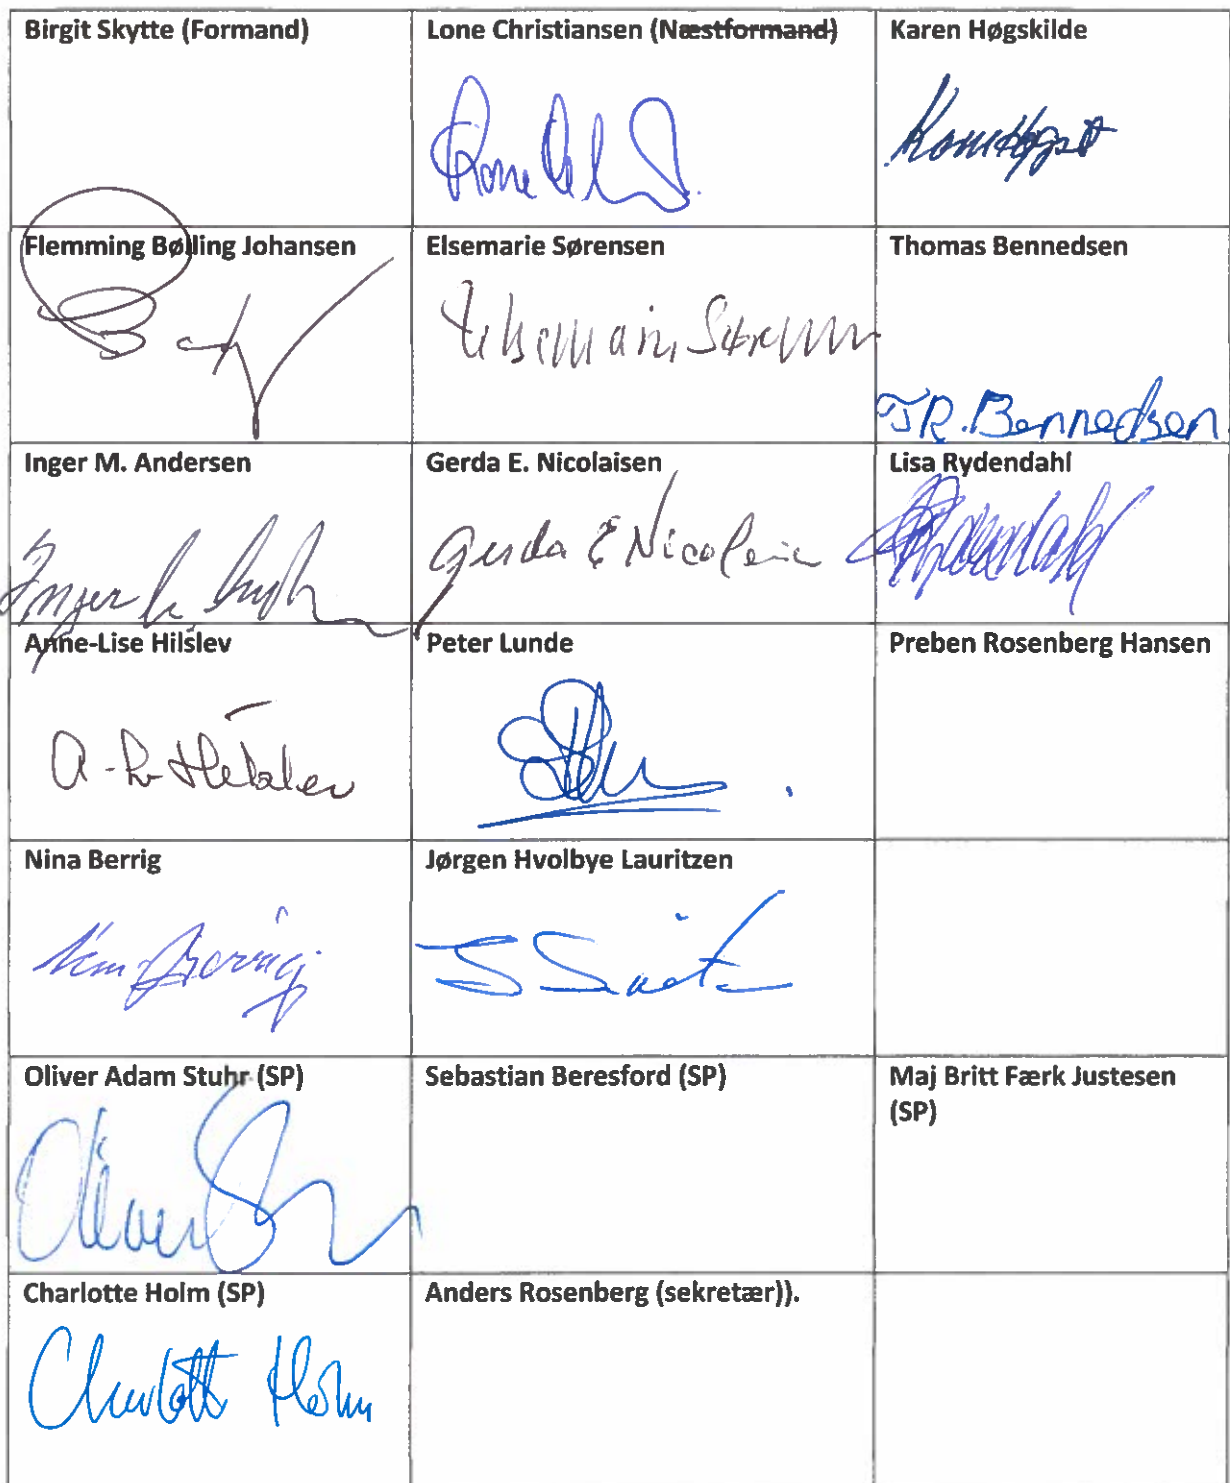 Birgit Skytte (Formand)
Lone Christiansen (Næstformand)
Karen Høgskilde
Flemming Bølling Johansen
Elsemarie Sørensen
Thomas Bennedsen
TR. Bennedsen
Inger M. Andersen
Gerda E. Nicolaisen
Gerda E Nicolaisen
Lisa Rydendahl
Rydendahl
Anne-Lise Hilslev
A-L Hilslev
Peter Lunde
Preben Rosenberg Hansen
Nina Berrig
Nina Berrig
Jørgen Hvolbye Lauritzen
Oliver Adam Stuhr (SP)
Oliver
Sebastian Beresford (SP)
Maj Britt Færk Justesen
(SP)
Charlotte Holm (SP)
Charlotte Holm
Anders Rosenberg (sekretær)).